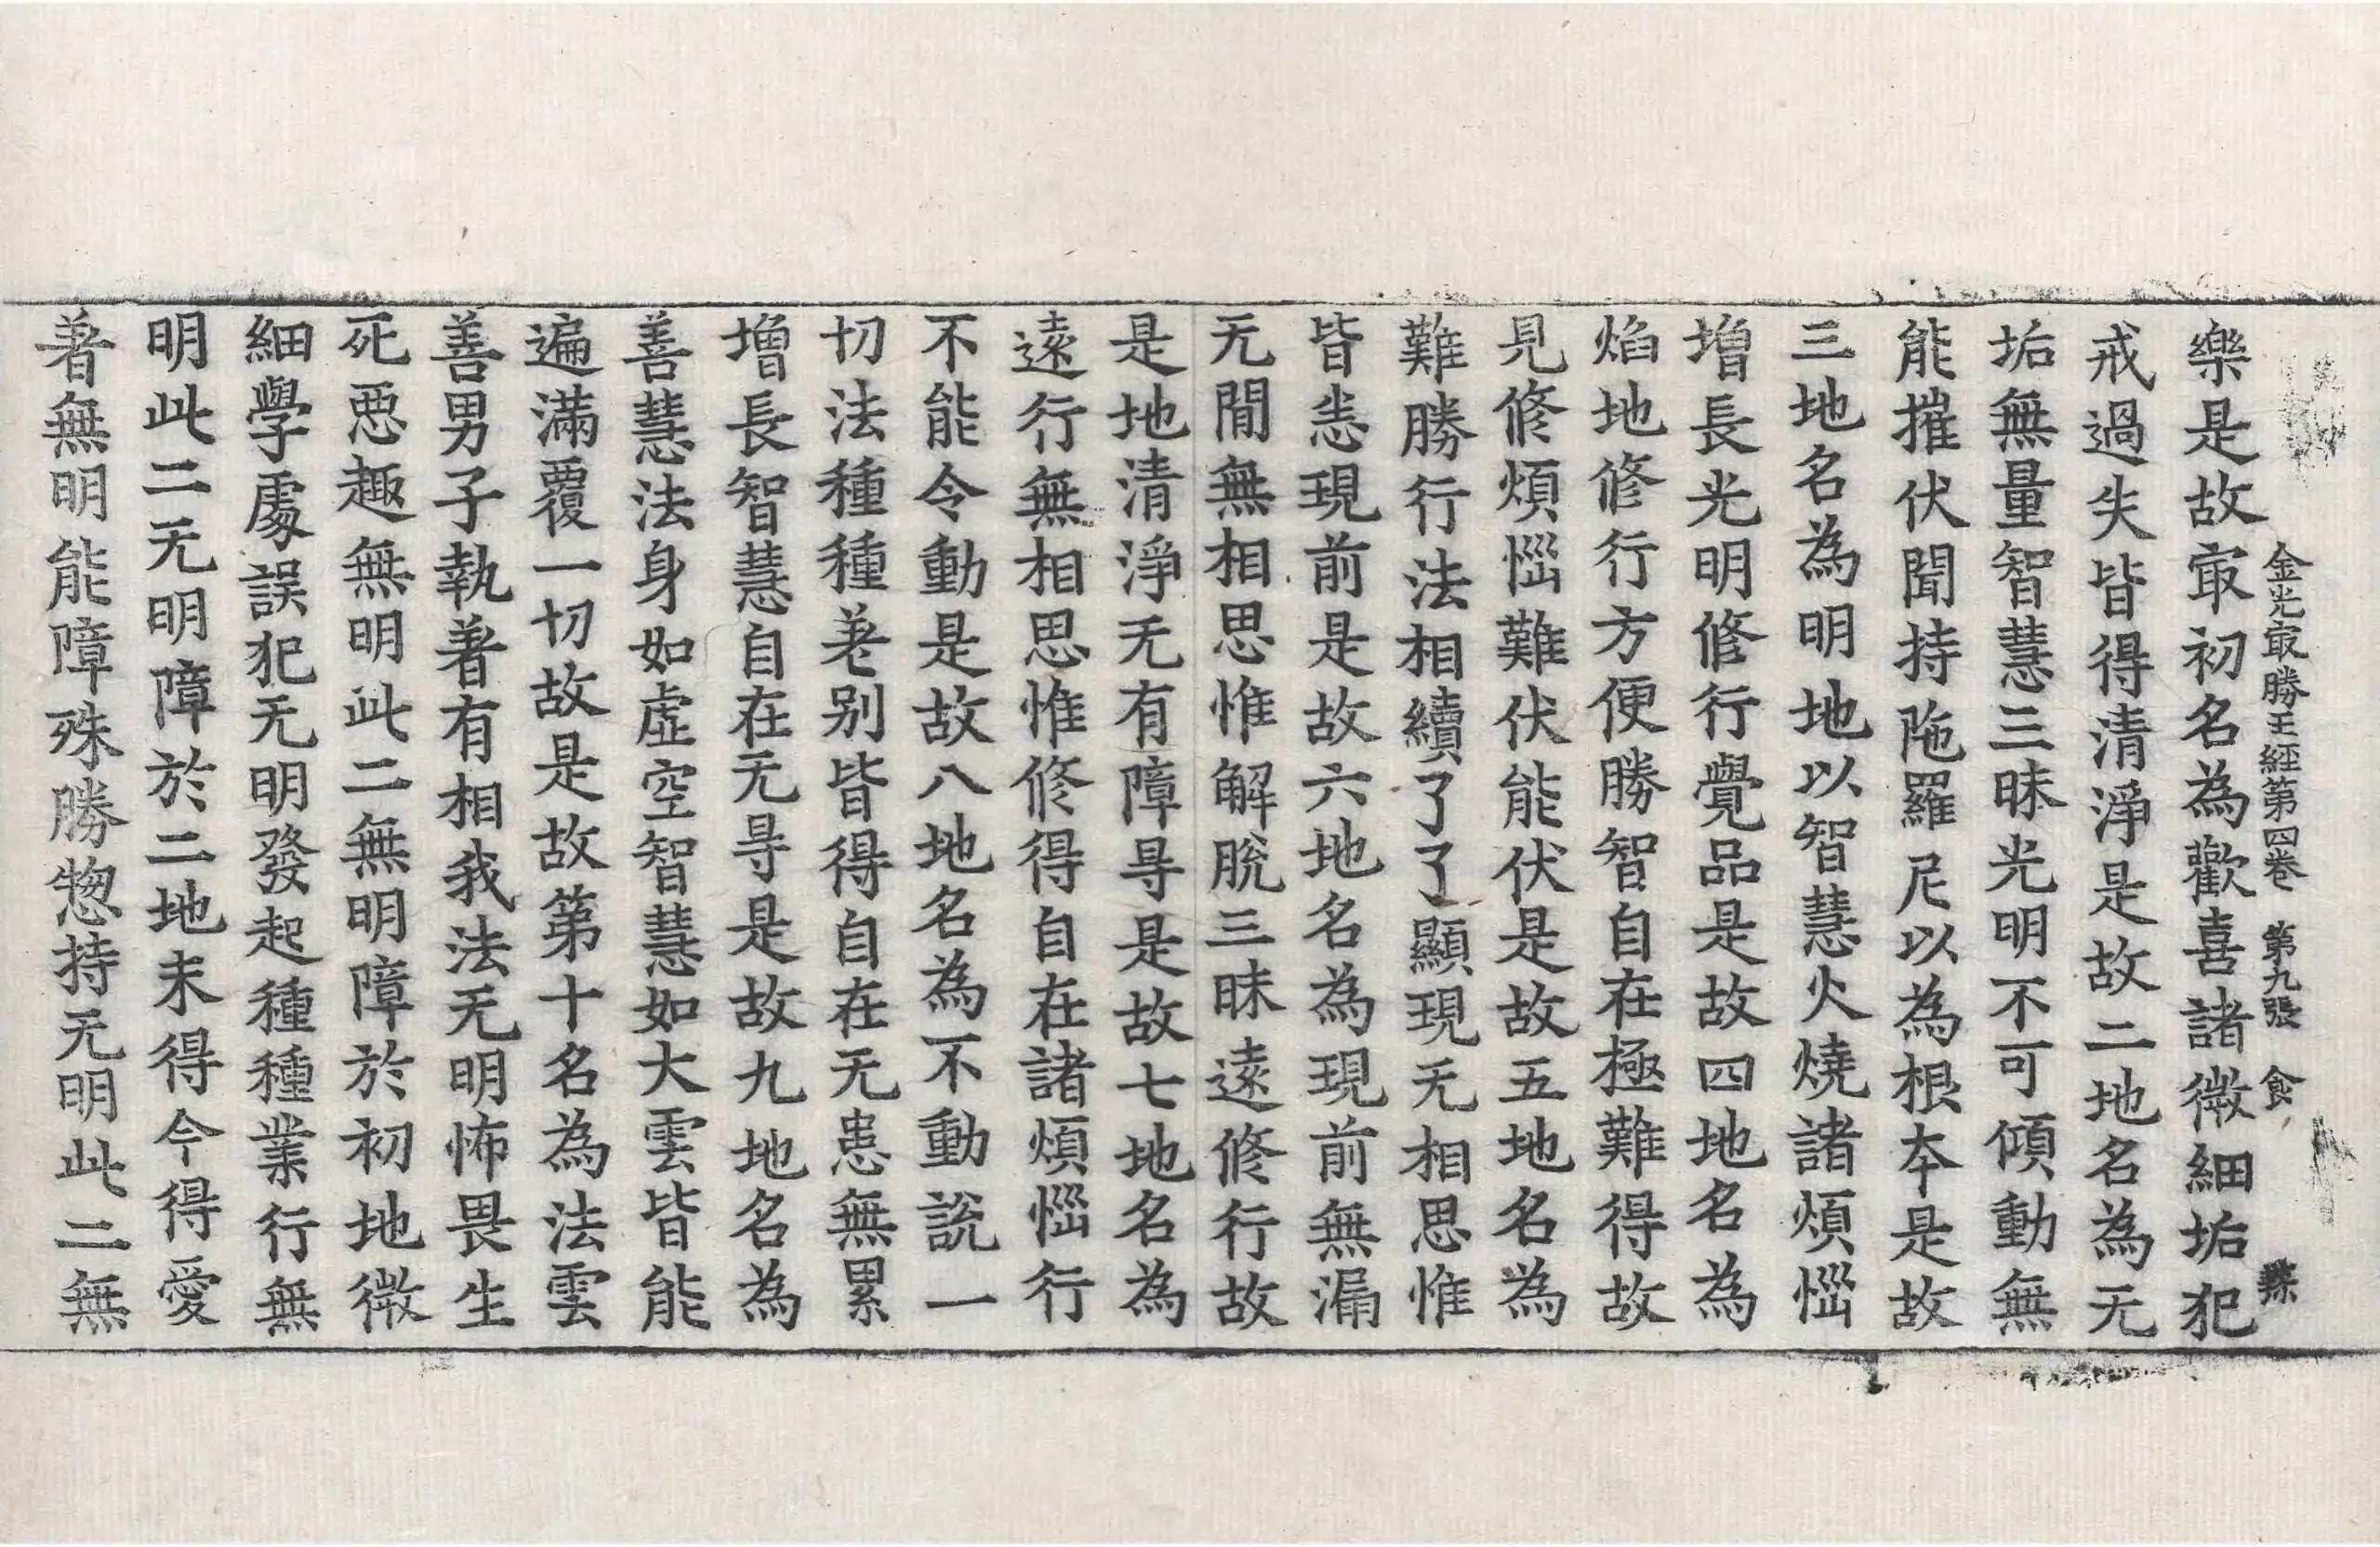 金光㝡勝王經第四卷　第九張　食
樂是故㝡初名為歡喜諸微細垢犯
戒過失皆得清淨是故二地名為无
垢無量智慧三昧光明不可傾動無
能摧伏聞持陁羅尼以為根本是故
三地名為明地以智慧火燒諸煩惱
增長光明修行覺品是故四地名為
焰地修行方便勝智自在極難得故
見修煩惱難伏能伏是故五地名為
難勝行法相續了了顯現无相思惟
皆悉現前是故六地名為現前無漏
无間無相思惟解脫三昧遠修行故
是地清淨无有障㝵是故七地名為
遠行無相思惟修得自在諸煩惱行
不能令動是故八地名為不動說一
切法種種差别皆得自在无患無累
增長智慧自在无㝵是故九地名為
善慧法身如虛空智慧如大雲皆能
遍滿覆一切故是故第十名為法雲
善男子執著有相我法无明怖畏生
死惡趣無明此二無明障於初地微
細學處誤犯无明發起種種業行無
明此二无明障於二地未得今得愛
著無明能障殊勝惣持无明此二無